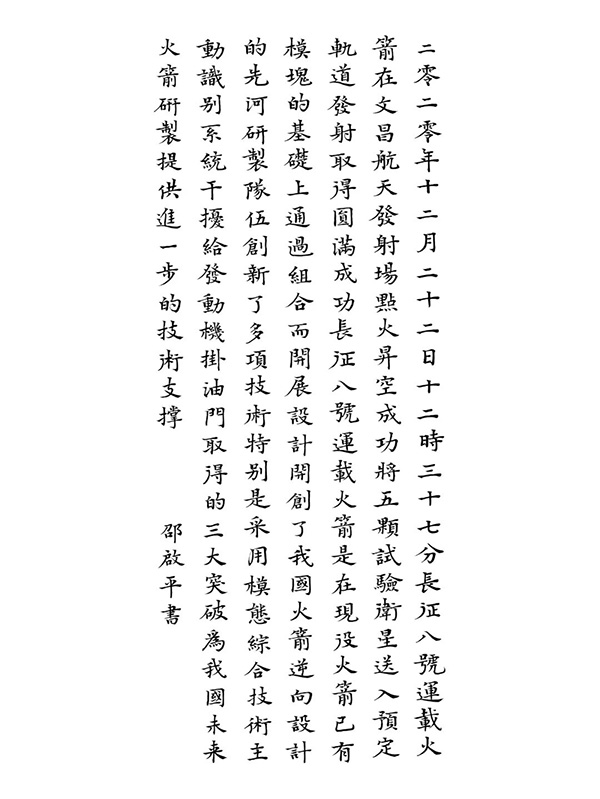 二零二零年十二月二十二日十二時三十七分長征八號運載火
箭在文昌航天發射場點火昇空成功將五顆試驗衛星送入預定
軌道發射取得圓滿成功長征八號運載火箭是在現役火箭已有
模塊的基礎上通過組合而開展設計開創了我國火箭逆向設計
的先河研製隊伍創新了多項技術特别是采用模態綜合技術主
動識别系統干擾給發動機掛油門取得的三大突破為我國未来
火箭研製提供進一步的技術支撑
邵啟平書